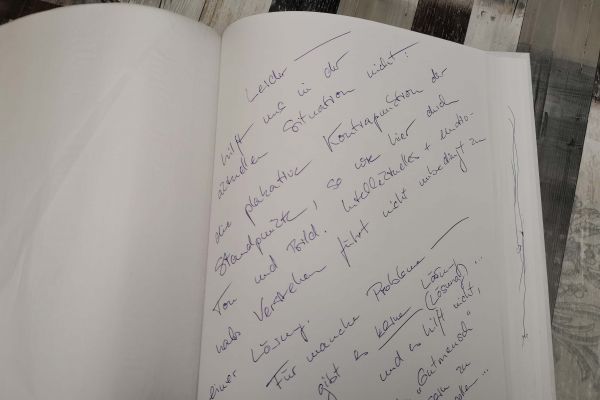 Leider —
hilft uns in der
aktuellen Situation nicht!
die plakative Kontrapunktion der
Standpunkte, so wie hier durch
Ton und Bild. Intellektuelles + emotio-
nales Verstehen führt nicht unbedingt zu
einer Lösung.
Für manche Probleme —
gibt es keine Lösung ...
(Lösung)
und es hilft nicht,
"Gutmensch"
sein zu